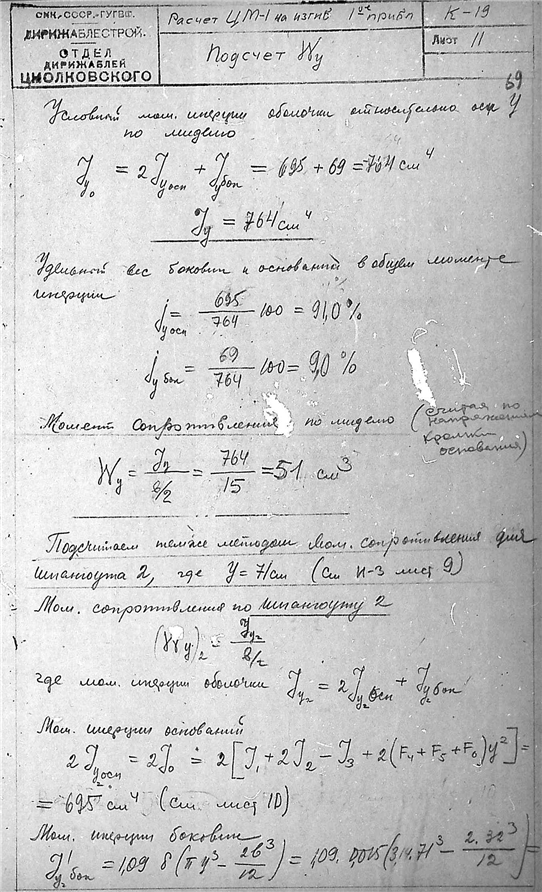 СНК. СССР. ГУГВФ.
ДИРИЖАБЛЕСТРОЙ.
ОТДЕЛ
ДИРИЖАБЛЕЙ
ЦИОЛКОВСКОГО
Расчет ЦМ-1 на изгиб 1ое прибл
К-19
Подсчет Wy
Лист 11
69
Условный мом. инерции оболочки относительно оси y
по миделю
Jy₀ = 2Jy осн + Jy бок = 695 + 69 = 764 см⁴
Jy = 764 см⁴
Удельный вес боковин и оснований в общем моменте
инерции
jy осн = 695/764 100 = 91,0 %
jy бок = 69/764 100 = 9,0 %
Момент сопротивления по миделю (считая по
напряжениям
кромки
основания)
Wy = Jy / b/2 = 764/15 = 51 см³
Подсчитаем тем же методом мом. сопротивления для
шпангоута 2, где y = 71 см (см К-3 лист 9)
Мом. сопротивления по шпангоуту 2
(Wy)₂ = Jy₂ / b/2
где мом. инерции оболочки Jy₂ = 2Jy₂осн + Jy₂бок
Мом. инерции оснований
2Jy₂осн = 2J₀ = 2[J₁ + 2J₂ − J₃ + 2(F₄ + F₅ + F₆)y²] =
= 695 см⁴ (см. лист 10)
Мом. инерции боковин
J'y₂бок = 1,09 δ(πy³ − 2b³/12) = 1,09. 0,015(3,14.71³ − 2.32³/12) =